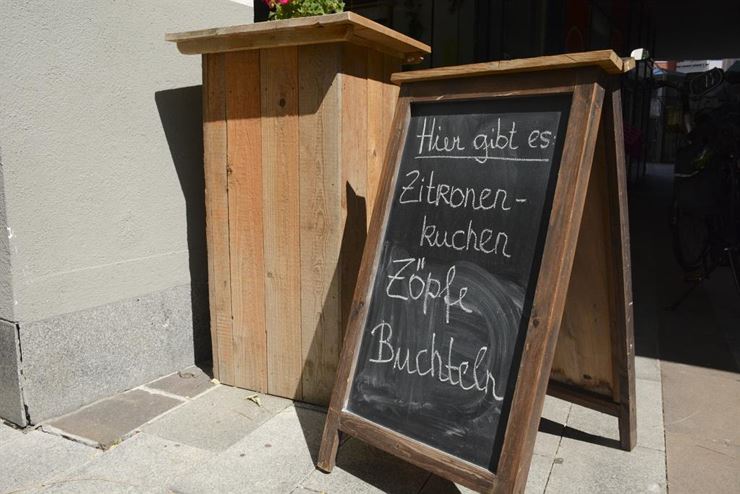 Hier gibt es:
Zitronen-
kuchen
Zöpfe
Buchteln